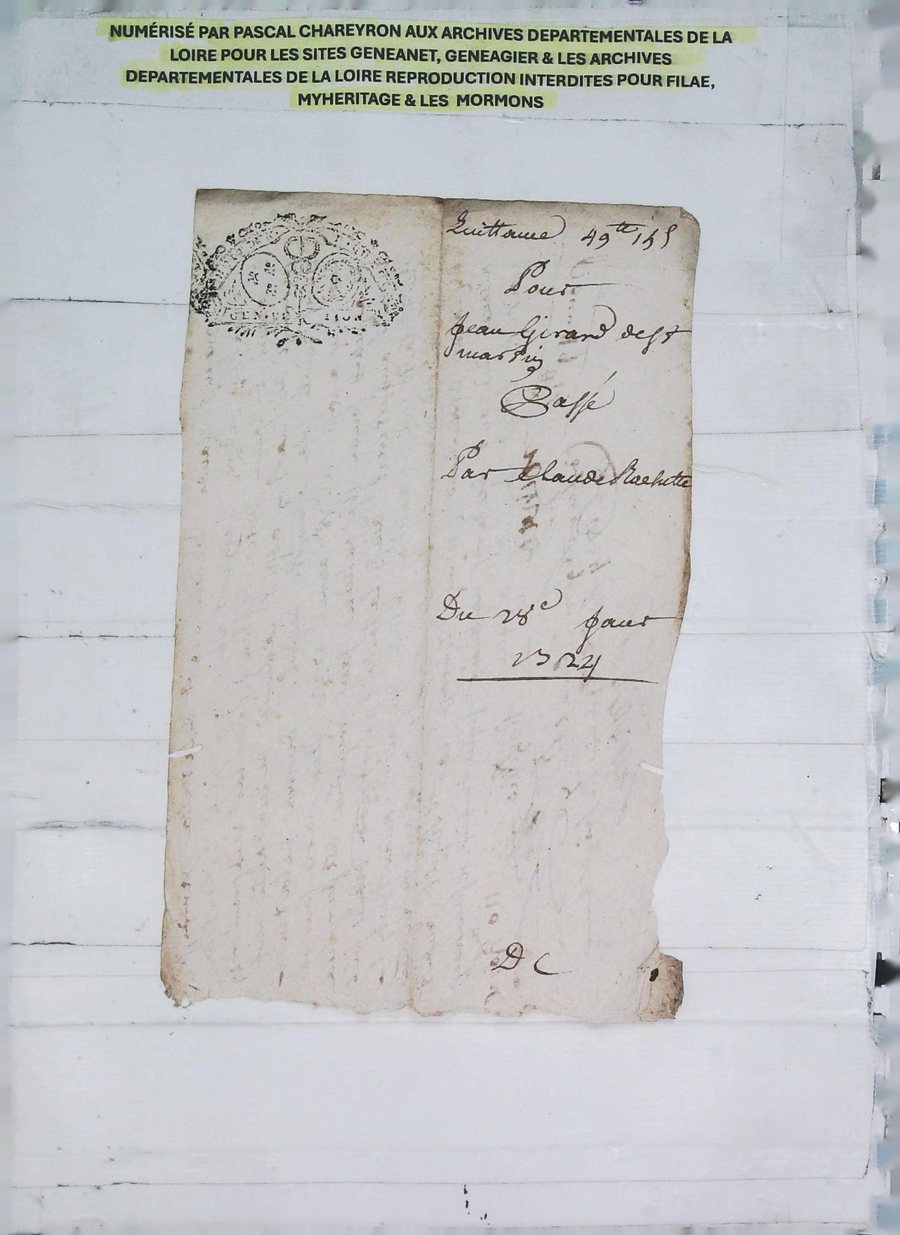 NUMÉRISÉ PAR PASCAL CHAREYRON AUX ARCHIVES DEPARTEMENTALES DE LA
LOIRE POUR LES SITES GENEANET, GENEAGIER & LES ARCHIVES
DEPARTEMENTALES DE LA LOIRE REPRODUCTION INTERDITES POUR FILAE,
MYHERITAGE & LES MORMONS
Quittance 49tt 15s
Pour
Jean Girard de st
martin
Passé
Par Claude Rachette
Du 28e Janr
1724
DC
LION